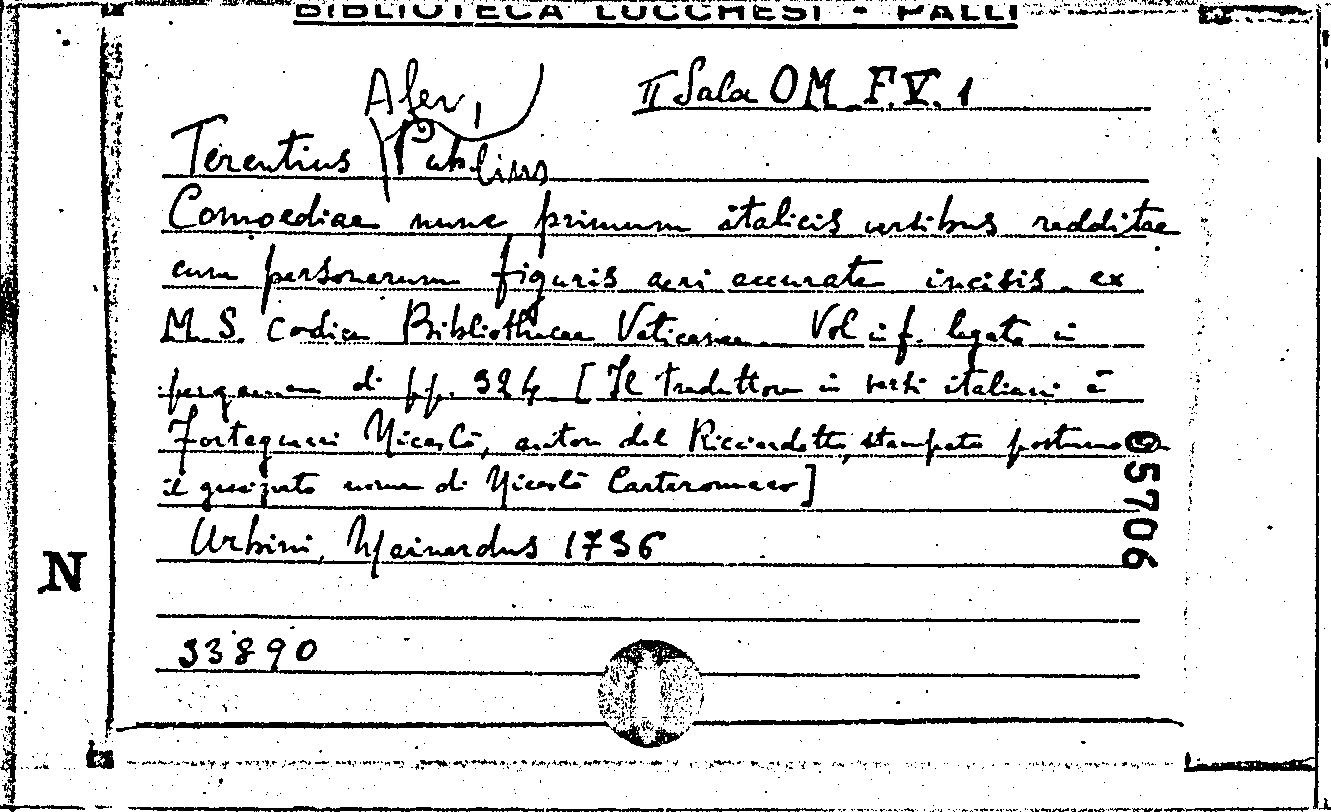 BIBLIOTECA LUCCHESI - PALLI
Afer, II Sala OM. F.V. 1
Terentius Publius
Comoediae nunc primum italicis versibus redditae
cum personarum figuris aeri accurate incisis ex
M.S. Codice Bibliothecae Vaticanae Vol in f. legato in
pergamena di pp. 324 [Il traduttore in versi italiani è
Forteguerri Nicolò, autore del Ricciardetto, stampato postumo
il nome di Nicolò Carteromaco]
Urbini, Mainardus 1736
N
33890
05706